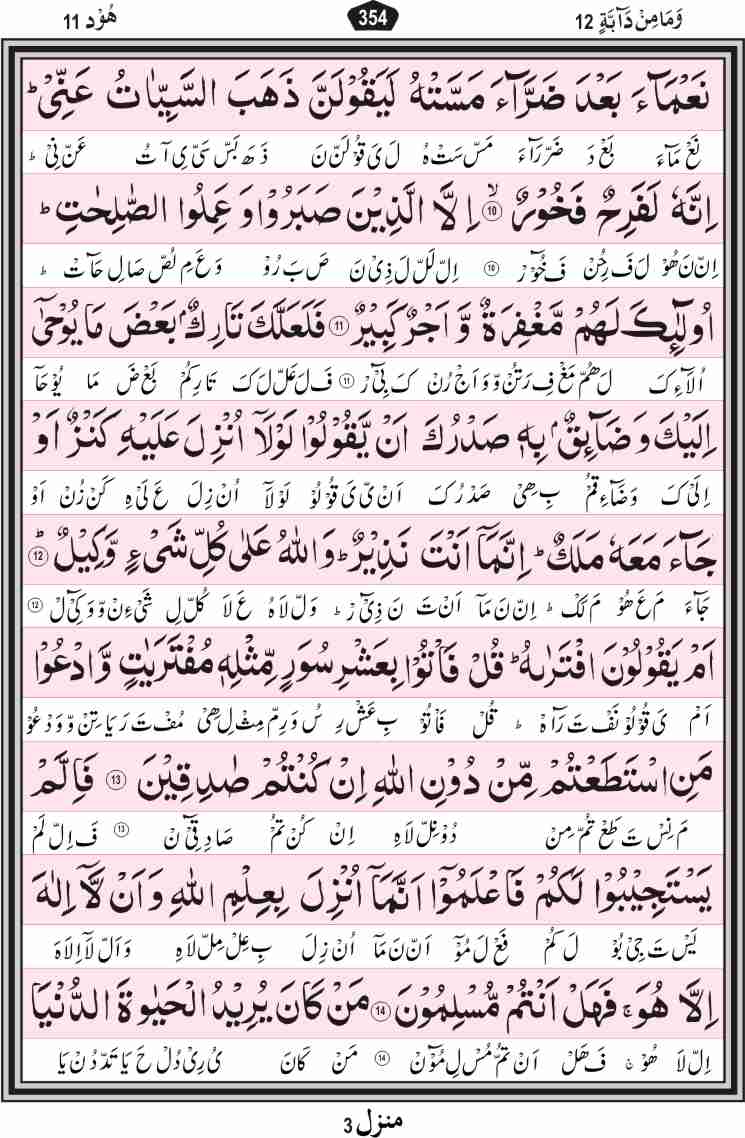 وَمَا مِنْ دَآبَّةٍ 12 354 هُوْد 11
نَعْمَآءَ بَعْدَ ضَرَّآءَ مَسَّتْهُ لَيَقُوْلَنَّ ذَهَبَ السَّيِّاٰتُ عَنِّيْ ؕ
نَعْ مَآءَ بَعْ دَ ضَرْرَآءَ مَسْ سَتْ هُ لَ یَ قُوْ لَنْ نَ ذَهَ بَسْ سَیْ یِ آ تُ عَنْ نِیْ ؕ
اِنَّهٗ لَفَرِحٌ فَخُوْرٌ ۙ﴿10﴾ اِلَّا الَّذِيْنَ صَبَرُوْا وَ عَمِلُوا الصّٰلِحٰتِ ؕ
اِنْ نَ هُوْ لَ فَ رِحُنْ فَ خُوْٓ رْ ﴿10﴾ اِلْ لَلْ لَ ذِیْ نَ صَ بَ رُوْ وَ عَ مِ لُصْ صَالِ حَآ تْ ؕ
اُولٰٓئِكَ لَهُمْ مَّغْفِرَةٌ وَّ اَجْرٌ كَبِيْرٌ ﴿11﴾ فَلَعَلَّكَ تَارِكٌۢ بَعْضَ مَا يُوْحٰۤى
اُلَآءِ كَ لَ هُمْ مَغْ فِ رَتُنْ وَ وَ اَجْ رُنْ كَ بِیْٓ رْ ﴿11﴾ فَ لَ عَلْ لَ كَ تَا رِ كُمْ بَعْ ضَ مَا یُوْ حَآ
اِلَيْكَ وَ ضَآئِقٌۢ بِهٖ صَدْرُكَ اَنْ يَّقُوْلُوْا لَوْلَاۤ اُنْزِلَ عَلَيْهِ كَنْزٌ اَوْ
اِلَیْ كَ وَ ضَآءِ قُمْ بِ هِیْ صَدْ رُ كَ اَنْ یْ یَ قُوْ لُوْ لَوْ لَآ اُنْ زِ لَ عَ لَیْ هِ كَنْ زُنْ اَوْ
جَآءَ مَعَهٗ مَلَكٌ ؕ اِنَّمَاۤ اَنْتَ نَذِيْرٌ ؕ وَاللّٰهُ عَلٰى كُلِّ شَيْءٍ وَّكِيْلٌ ؕ﴿12﴾
جَآءَ مَ عَ هُوْ مَ لَكْ ؕ اِنْ نَ مَآ اَنْ تَ نَ ذِیْٓ رْ ؕ وَلْ لَاهُ عَ لَا كُلْ لِ شَیْ ءِنْ وَ وَ كِیْٓ لْ ﴿12﴾
اَمْ يَقُوْلُوْنَ افْتَرٰىهُ ؕ قُلْ فَاْتُوْا بِعَشْرِ سُوَرٍ مِّثْلِهٖ مُفْتَرَيٰتٍ وَّ ادْعُوْا
اَمْ یَ قُوْ لُوْ نَفْ تَ رَآ هْ ؕ قُلْ فَاْتُوْ بِ عَشْ رِ سُ وَ رِمْ مِثْ لِ هِیْ مُفْ تَ رَ یَا تِنْ وَ وَدْعُوْ
مَنِ اسْتَطَعْتُمْ مِّنْ دُوْنِ اللّٰهِ اِنْ كُنْتُمْ صٰدِقِيْنَ ﴿13﴾ فَاِلَّمْ
مَ نِسْ تَ طَعْ تُمْ مِنْ دُوْ نِلْ لَاهِ اِنْ كُنْ تُمْ صَا دِ قِیْٓ نْ ﴿13﴾ فَ اِلْ لَمْ
يَسْتَجِيْبُوْا لَكُمْ فَاعْلَمُوْۤا اَنَّمَاۤ اُنْزِلَ بِعِلْمِ اللّٰهِ وَ اَنْ لَّاۤ اِلٰهَ
یَسْ تَ جِیْ بُوْ لَ كُمْ فَعْ لَ مُوْٓ اَنْ نَ مَآ اُنْ زِ لَ بِ عِلْ مِلْ لَاهِ وَ اَلْ لَآ اِلَاهَ
اِلَّا هُوَ ۚ فَهَلْ اَنْتُمْ مُّسْلِمُوْنَ ﴿14﴾ مَنْ كَانَ يُرِيْدُ الْحَيٰوةَ الدُّنْيَا
اِلْ لَا هُوْ ۚ فَ هَلْ اَنْ تُمْ مُسْ لِ مُوْٓ نْ ﴿14﴾ مَنْ كَانَ یُ رِیْ دُلْ حَ یَا تَدْ دُنْ یَا
منزل 3